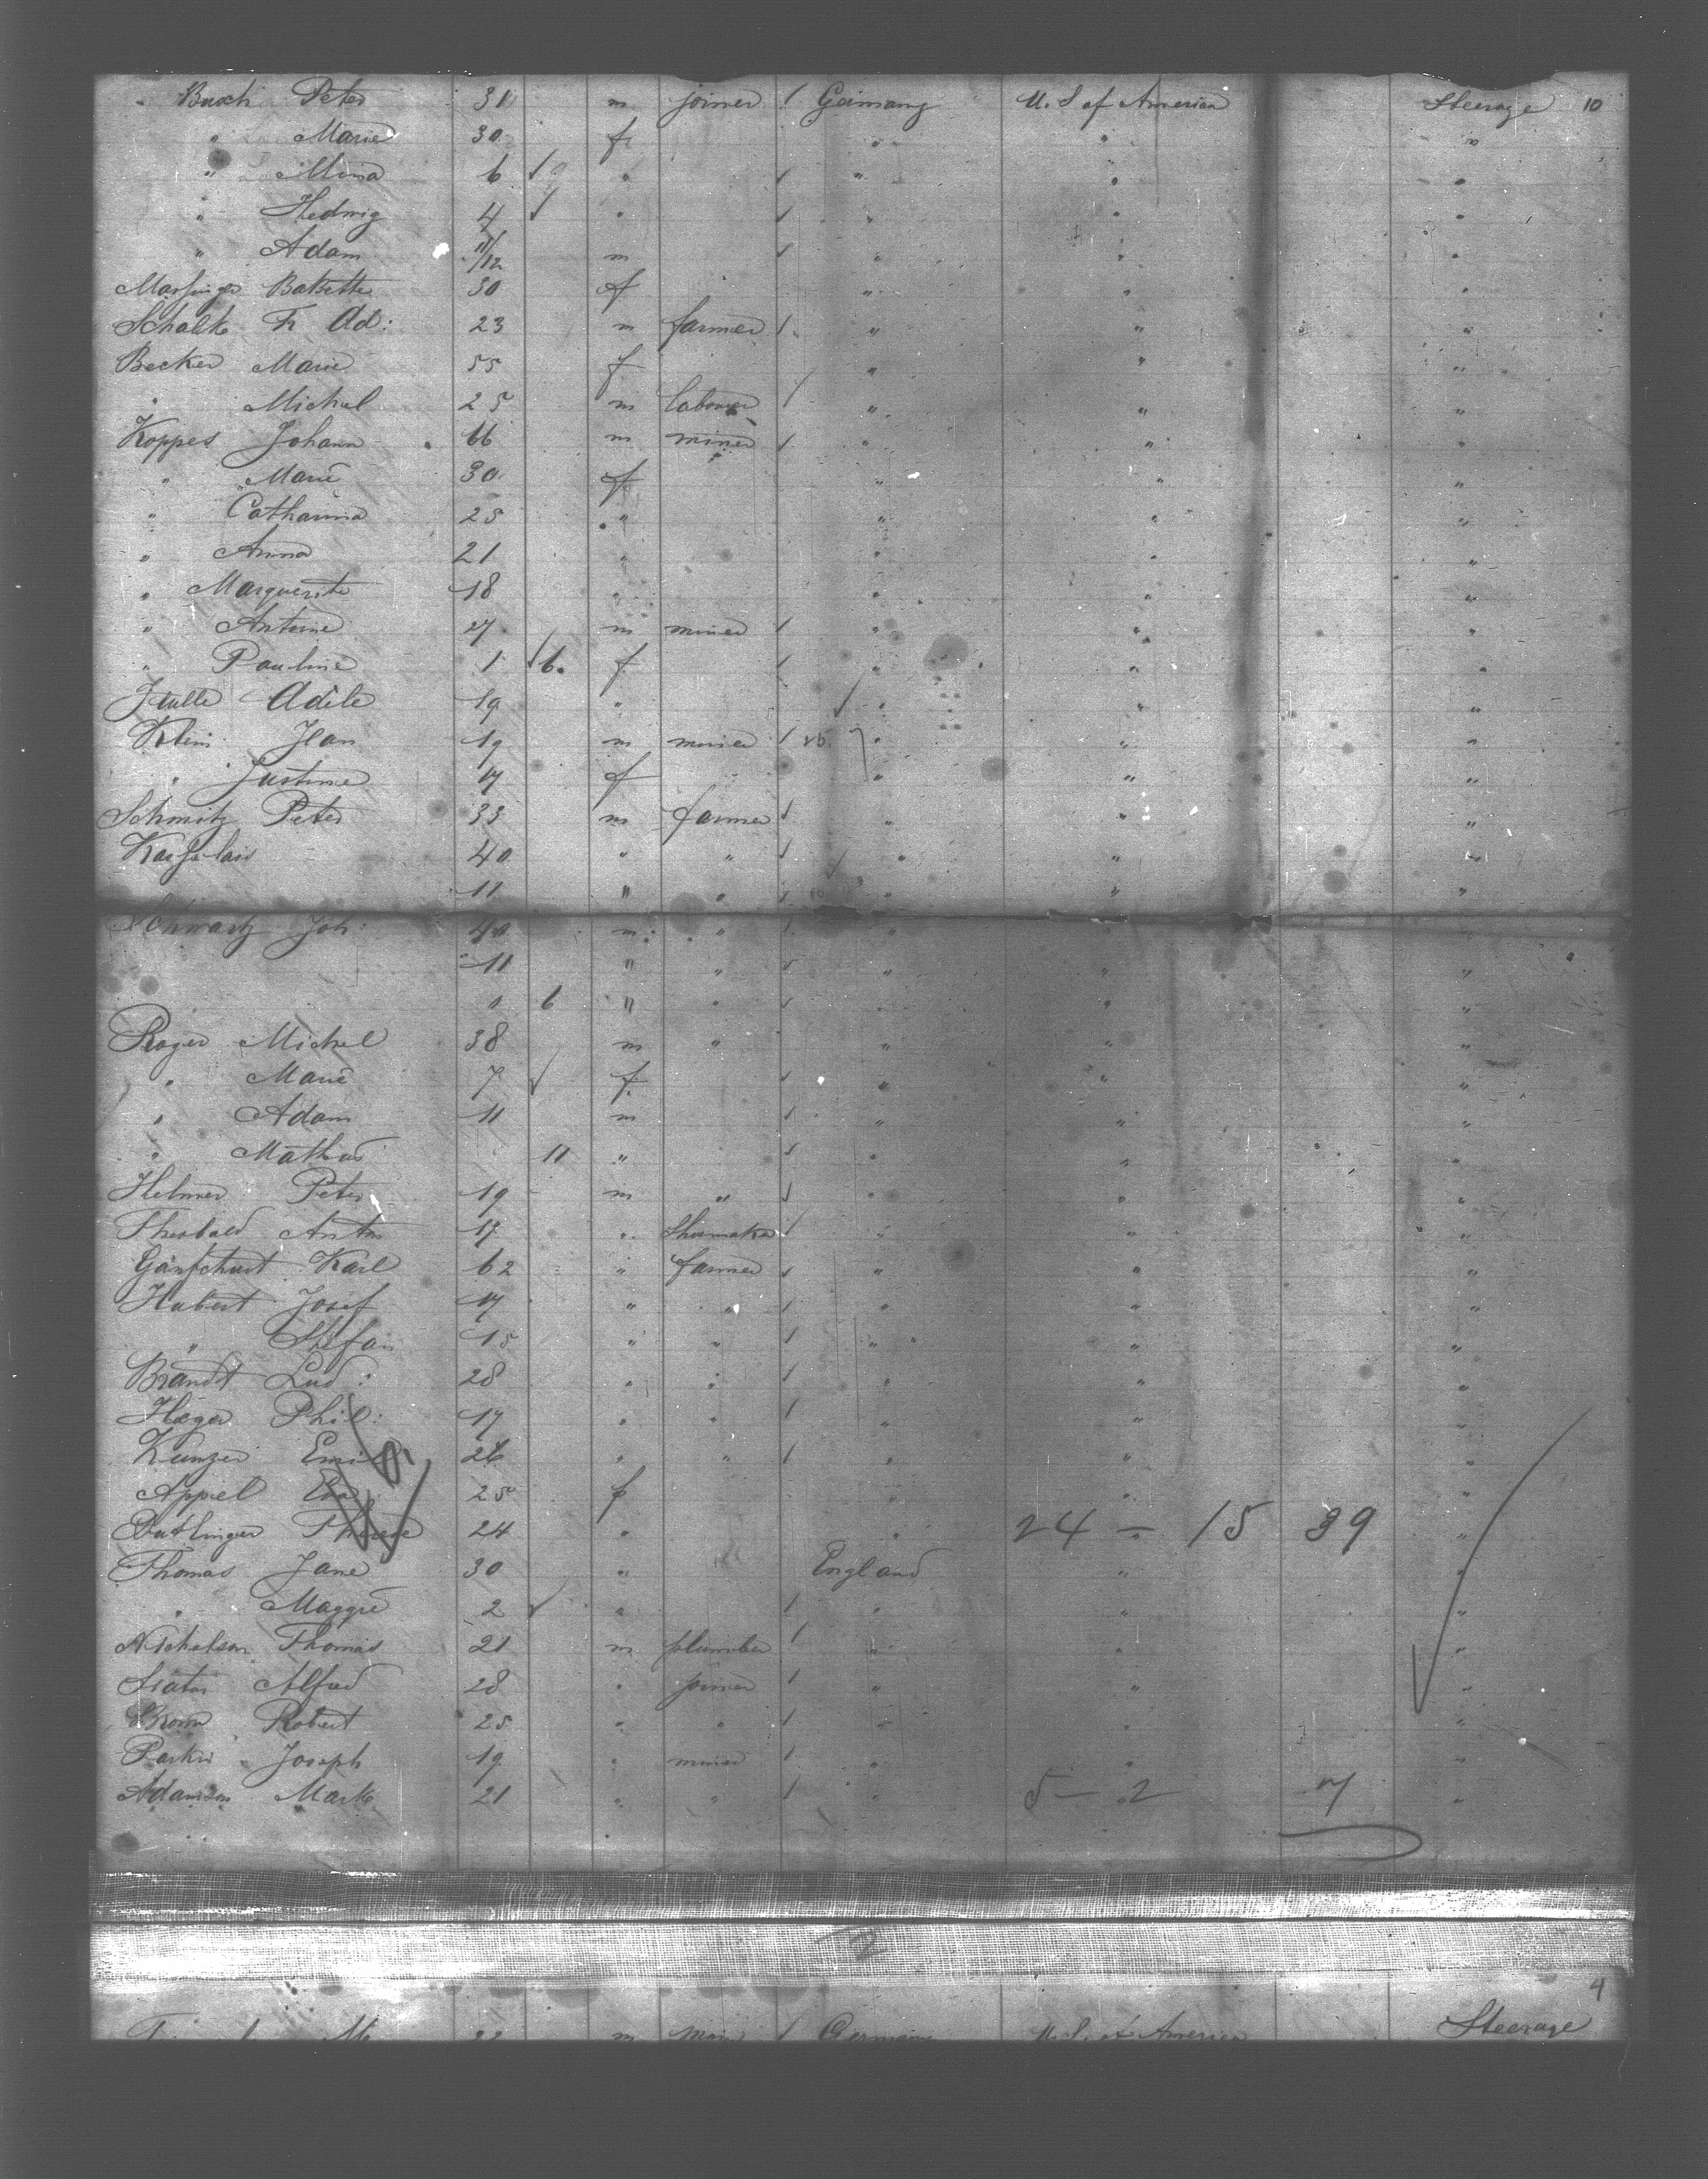 " Busch Peter 31 m joiner / Germany U. S of America Steerage 10
" Marie 30 f " " "
" Mina 6 " " " "
" Hedwig 4 " " " "
" Adam 11/12 m " " "
Babette 30 f " " "
Schalk Fr Ad: 23 m farmer / " " "
Becker Marie 55 f " " "
" Michel 25 m labourer / " " "
Koppes Johann 66 m miner / " " "
" Marie 30 f " " "
" Catharina 25 " " " "
" Anna 21 " " " "
" Marguerite 18 " " " "
" Antoine 27 m miner / " " "
" Pauline 1 6 f / " " "
Adèle 19 " " " "
Klein Jean 19 m miner / " " "
" Justine 17 f " " "
Schmitz Peter 33 m farmer / " " "
40 " " / " " "
11 " " / " " "
Schwartz Joh: 40 m " / " " "
11 " " / " " "
" 6 " " / " " "
Roger Michel 38 m " " " "
" Marie 7 f / " " "
" Adam 11 m / " " "
" Mathias 11 " / " " "
Helmer Peter 19 m " / " " "
Theobald Anton 17 " Shumaker / " " "
Karl 62 " farmer / " " "
Hubert Josef 17 " " / " " "
" Stefan 15 " " / " " "
Brandt Lud: 28 " " / " " "
Häger Phil: 17 " " / " " "
Kunzer Emil 26 " " / " " "
Appiel Eva 25 f " " "
Dutlinger Therese 24 " " 24 — 15 39 "
Thomas Jane 30 " England " "
" Maggie 2 " / " " "
Nicholson Thomas 21 m plumber / " " "
Alfred 28 " joiner / " " "
Brown Robert 25 " " / " " "
Parkin Joseph 19 " miner / " " "
Adamson Mark 21 " " / " 5 — 2 7 "
2
4
22 m / Germany U. S. of America Steerage